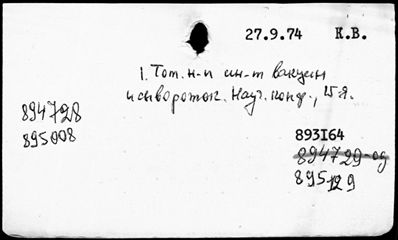 27.9.74 К.В.
1. Том. н-и ин-т вакцин
и сывороток. Науч. конф., 15-я.
894728
895008
893I64
894729-од
895129